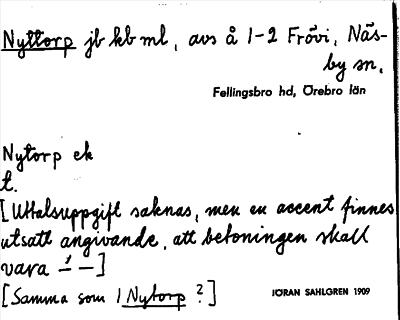 Nyttorp jb kb ml, avs å 1-2 Frövi, Näs-
by sn,
Fellingsbro hd, Örebro län
Nytorp ek
t.
[Uttalsuppgift saknas, men en accent finnes
utsatt angivande, att betoningen skall
vara –́ –]
[Samma som 1 Nytorp ?]
JÖRAN SAHLGREN 1909